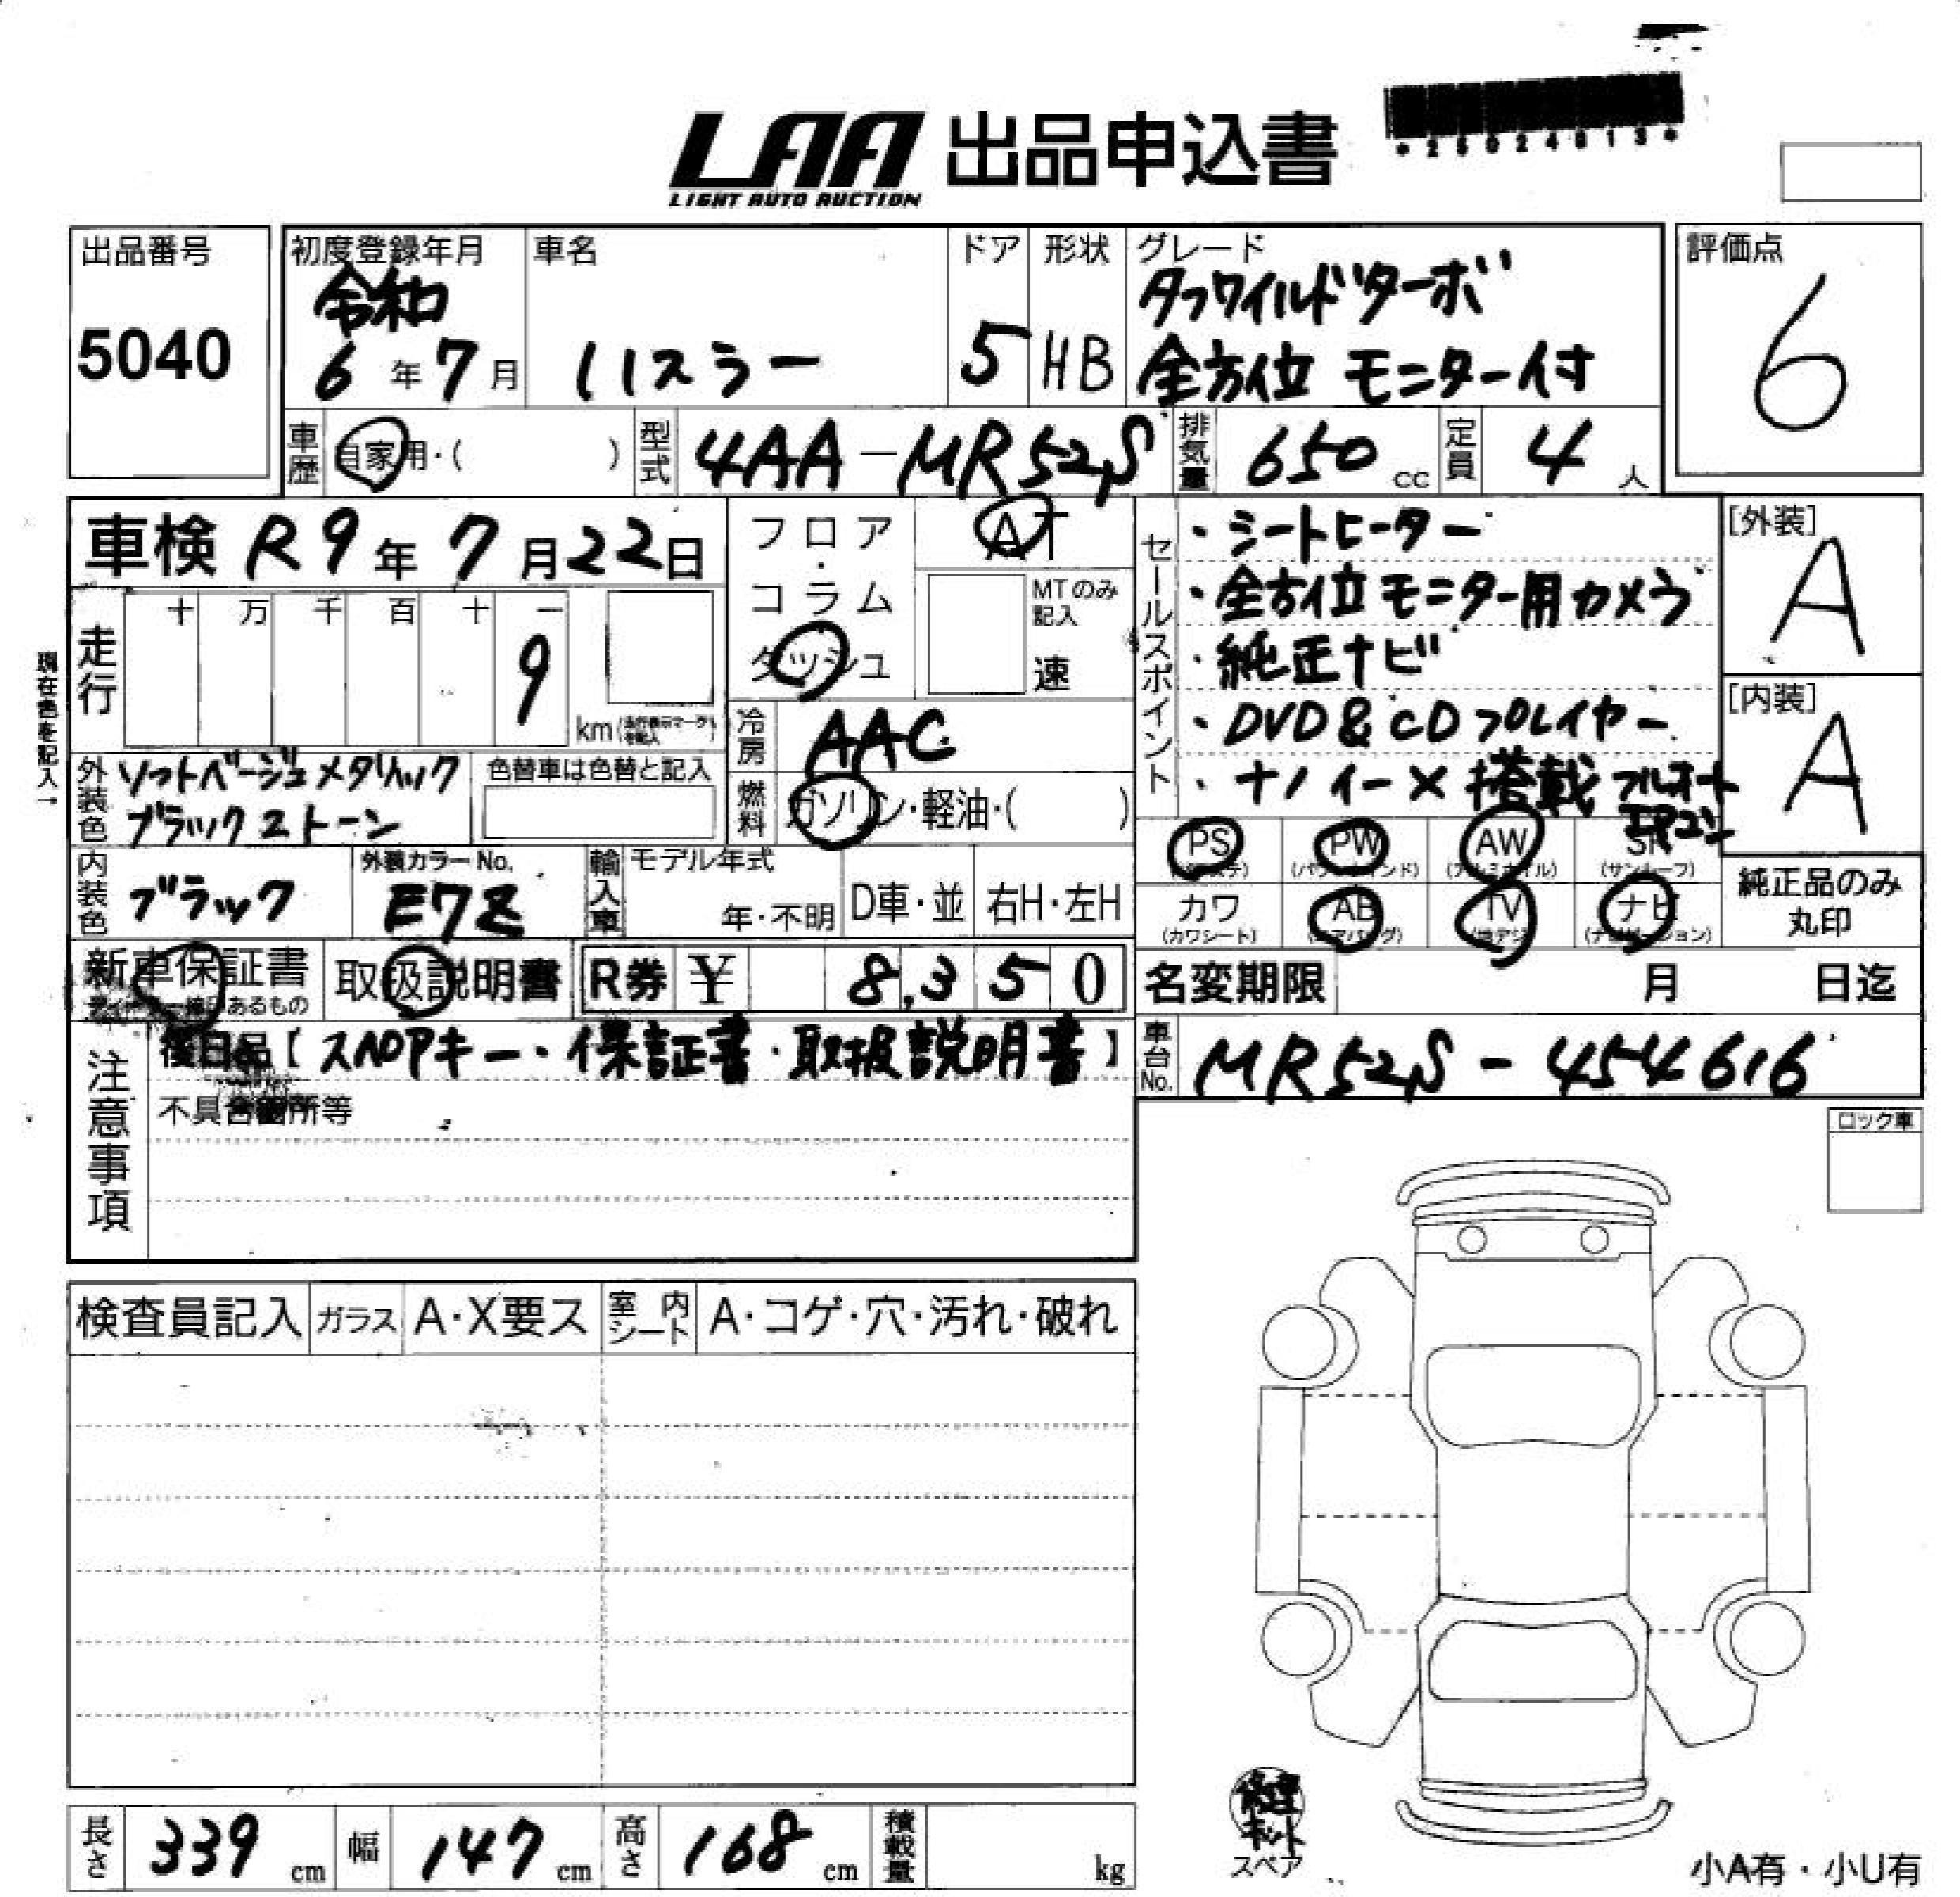 LAA 出品申込書
LIGHT AUTO AUCTION
*25024813*
出品番号
5040
初度登録年月
令和
6年7月
車名
ハスラー
ドア
5
形状
HB
グレード
タフワイルドターボ
全方位モニター付
評価点
6
車歴 自家用・( )
型式 4AA-MR52S
排気量 650 cc
定員 4人
車検 R9年7月22日
フロア・コラム
ダッシュ
AT
MTのみ記入
速
走行 十 万 千 百 十 一
9
km
現在色を記入→
冷房 AAC
外装色 ソフトベージュメタリック
ブラック2トーン
色替車は色替と記入
燃料 ガソリン・軽油・( )
内装色 ブラック
外装カラーNo.
E7Z
輸入車 モデル年式
年・不明
D車・並
右H・左H
セールスポイント
・シートヒーター
・全方位モニター用カメラ
・純正ナビ
・DVD&CDプレイヤー
・ナノイーX搭載フルオート
エアコン
[外装]
A
[内装]
A
PS PW AW SR
(パワーウインド) (アルミホイル) (サンルーフ)
カワ AB TV ナビ
(カワシート) (エアバッグ) (地デジ) (ナビゲーション)
純正品のみ
丸印
新車保証書
取扱説明書
R券 ¥ 8,350
名変期限 月 日迄
注意事項
後日品【スペアキー・保証書・取扱説明書】
不具合箇所等
車台No. MR52S-454616
ロック車
検査員記入 ガラス A・X要ス 室内シート A・コゲ・穴・汚れ・破れ
長さ 339 cm
幅 147 cm
高さ 168 cm
積載量 kg
修理
キット
スペア
小A有・小U有